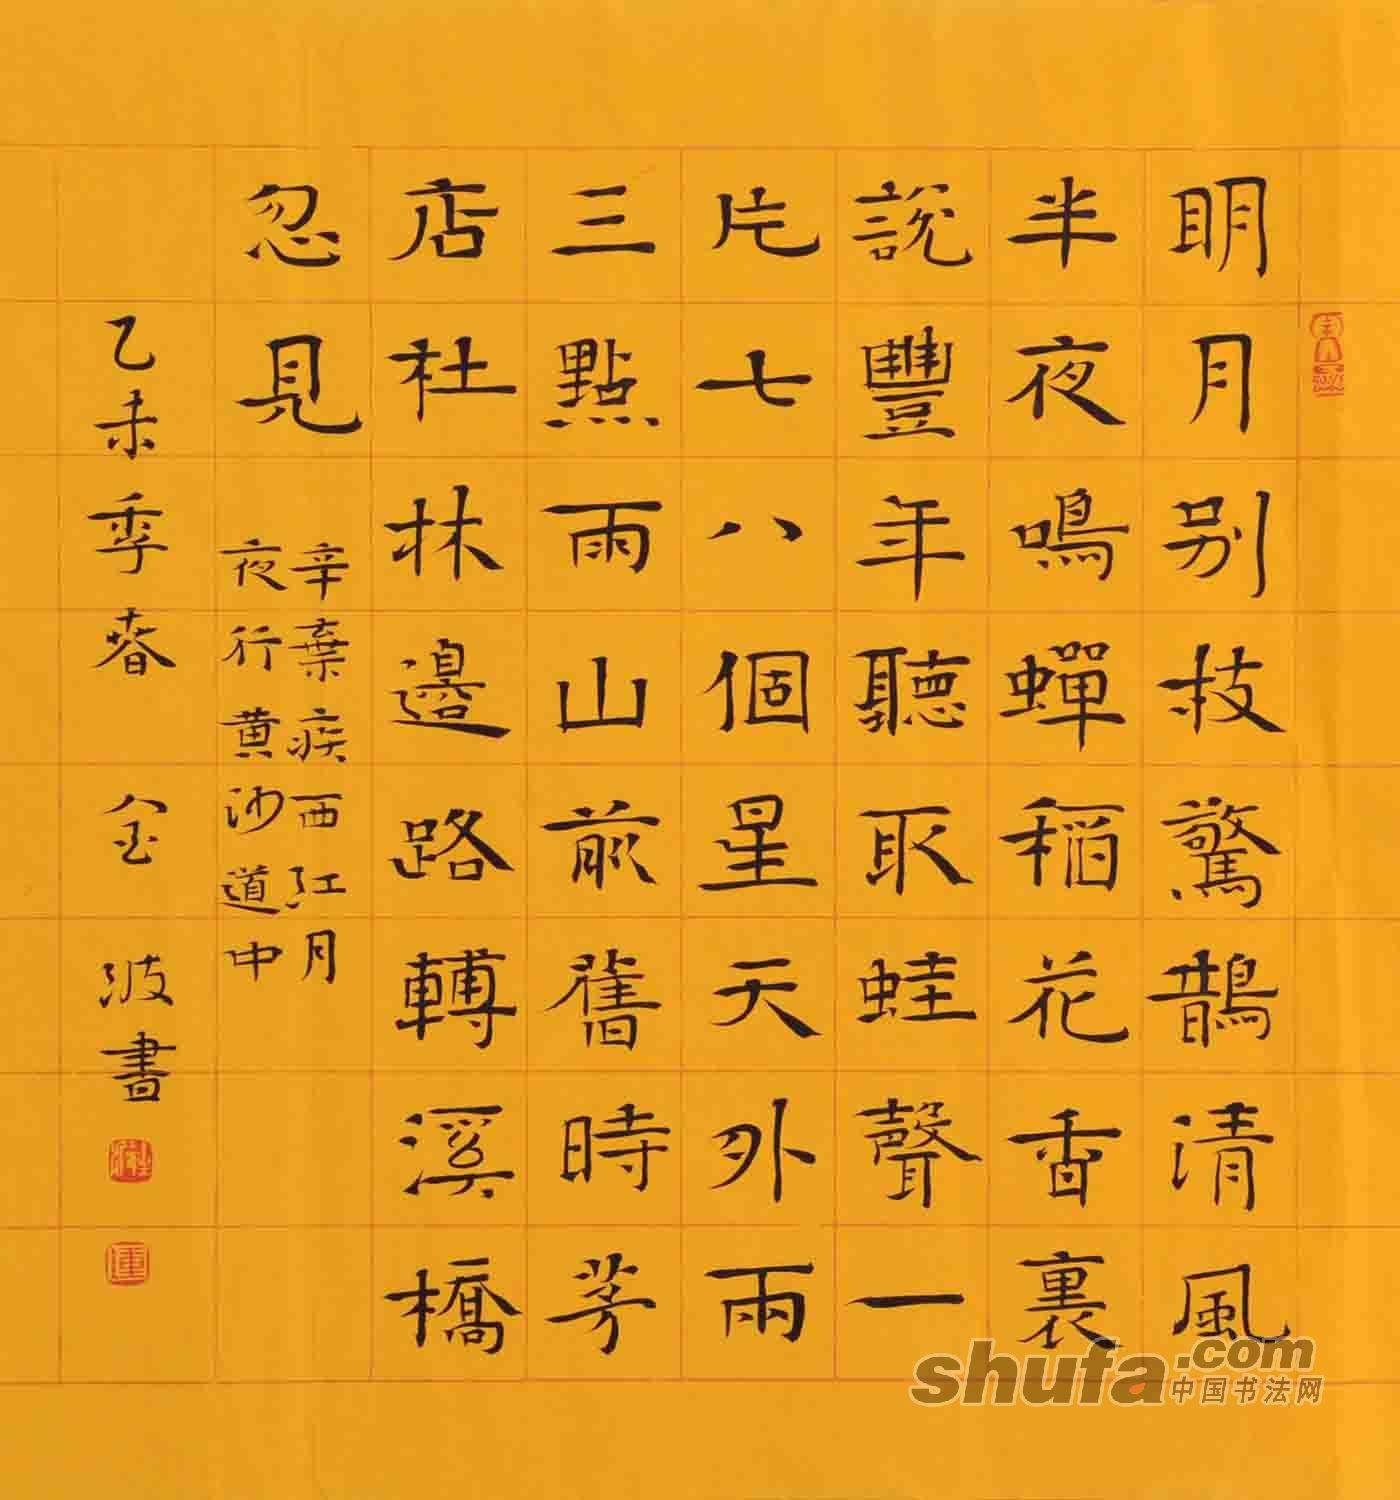 明月别枝驚鵲清風
半夜鳴蟬稻花香裏
説豐年聽取蛙聲一
片七八個星天外兩
三點雨山前舊時茅
店社林邊路轉溪橋
忽見
辛棄疾西江月
夜行黄沙道中
乙未季春 金波書
shufa.com
中国书法网